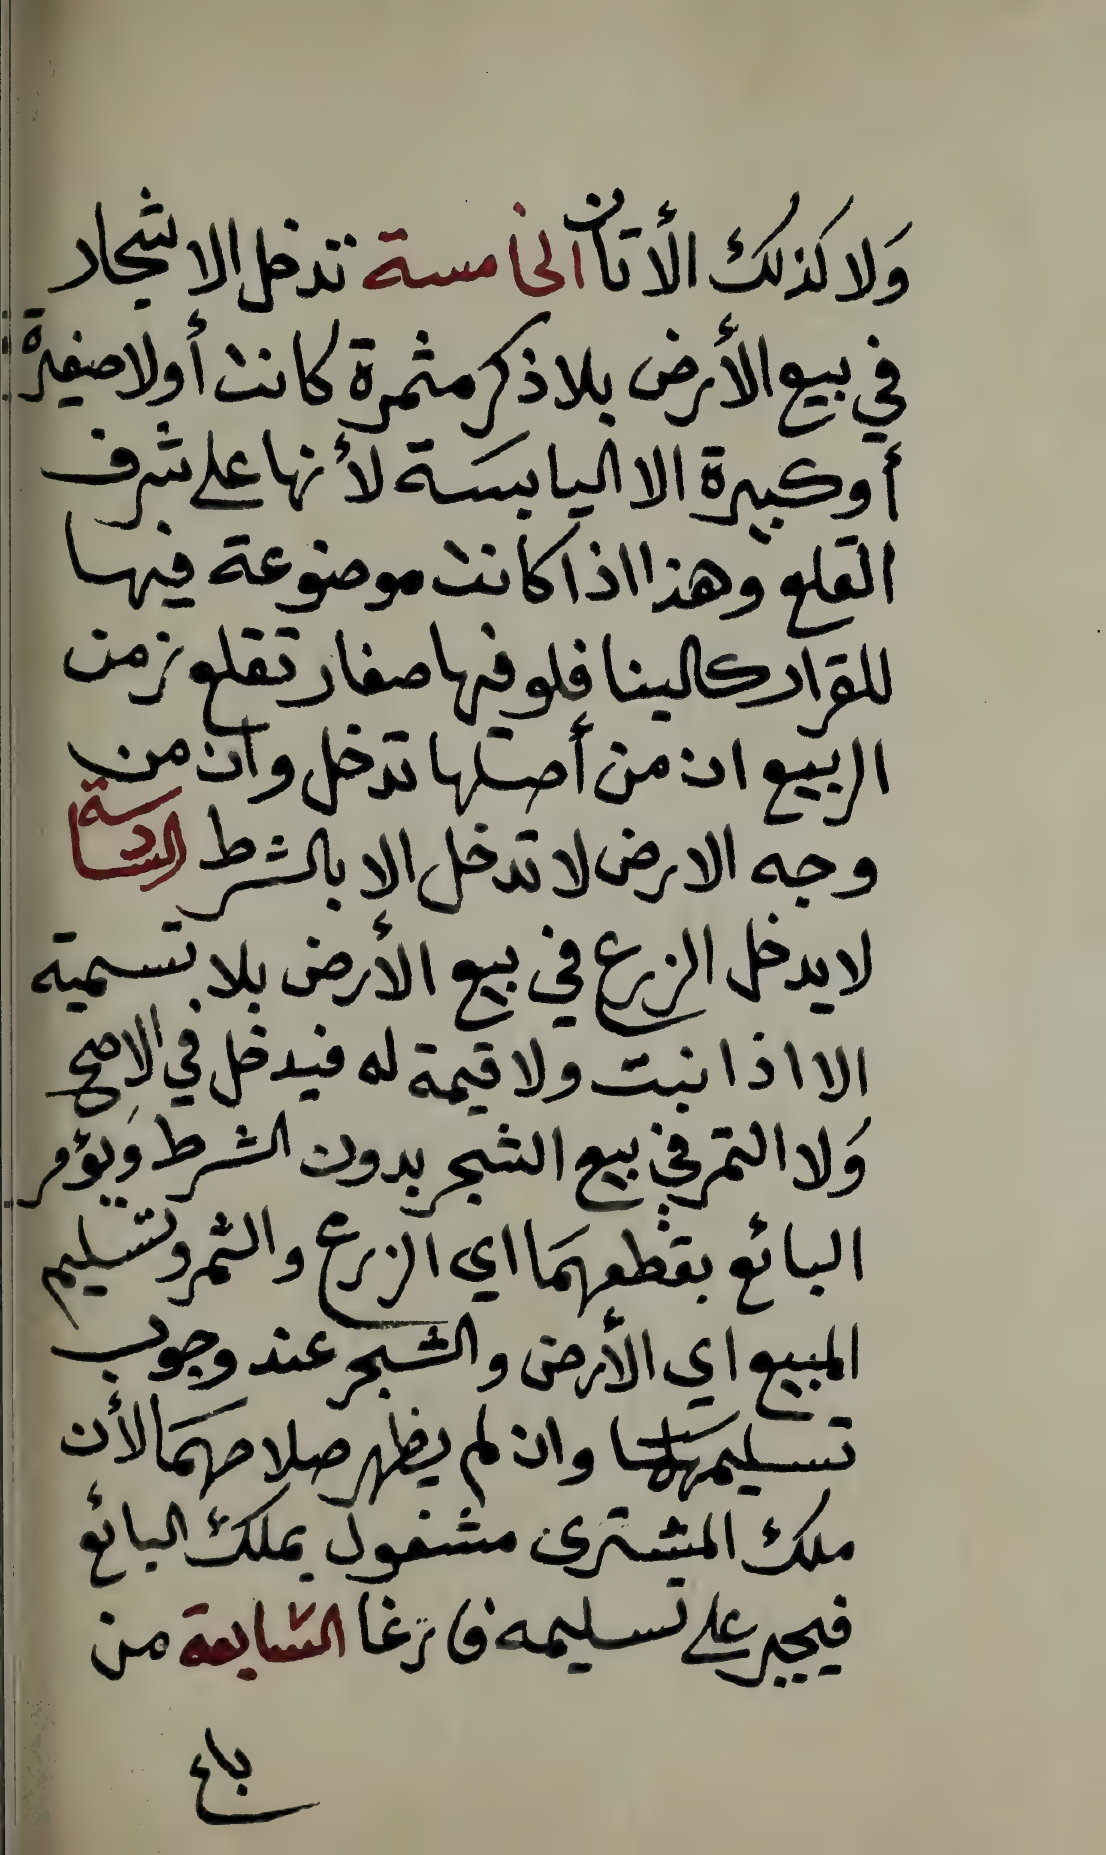 وَلا كذلك الأتان الخامسة تدخل الاشجار
في بيع الأرض بلا ذكر مثمرة كانت أولا صغيرة
أو كبيرة الا اليابسة لأنها على شرف
القلع وهذا اذا كانت موضوعة فيها
للقرار كالبنا فلو فيها صغار تقلع زمن
الربيع ان من أصلها تدخل وان من
وجه الارض لا تدخل الا بالشرط السادسة
لا يدخل الزرع في بيع الأرض بلا تسمية
الا اذا نبت ولا قيمة له فيدخل في الاصح
وَلا التمر في بيع الشجر بدون الشرط وَيؤمر
البائع بقطعهما اي الزرع والثمر وتسليم
المبيع اي الأرض والشجر عند وجوب
تسليمها وان لم يظهر صلاحهما لأن
ملك المشترى مشغول بملك البائع
فيجبر على تسليمه فارغا السابعة من
باع